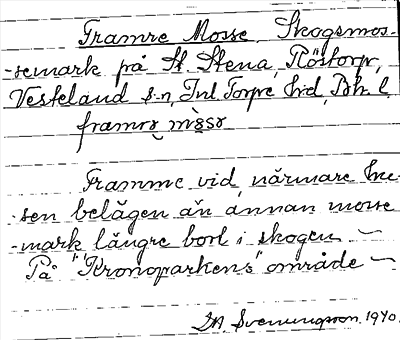 Framre Mosse, Skogsmos-
-semark på St Stena, Röstorp,
Vesteland s-n, Inl. Torpe hrd, Bh. l.
framrə mɔsə

Framme vid närmare
-sen belägen än annan mosse
-mark längre bort i skogen —
På "Kronoparkens" område —

Svenungsson. 1940.